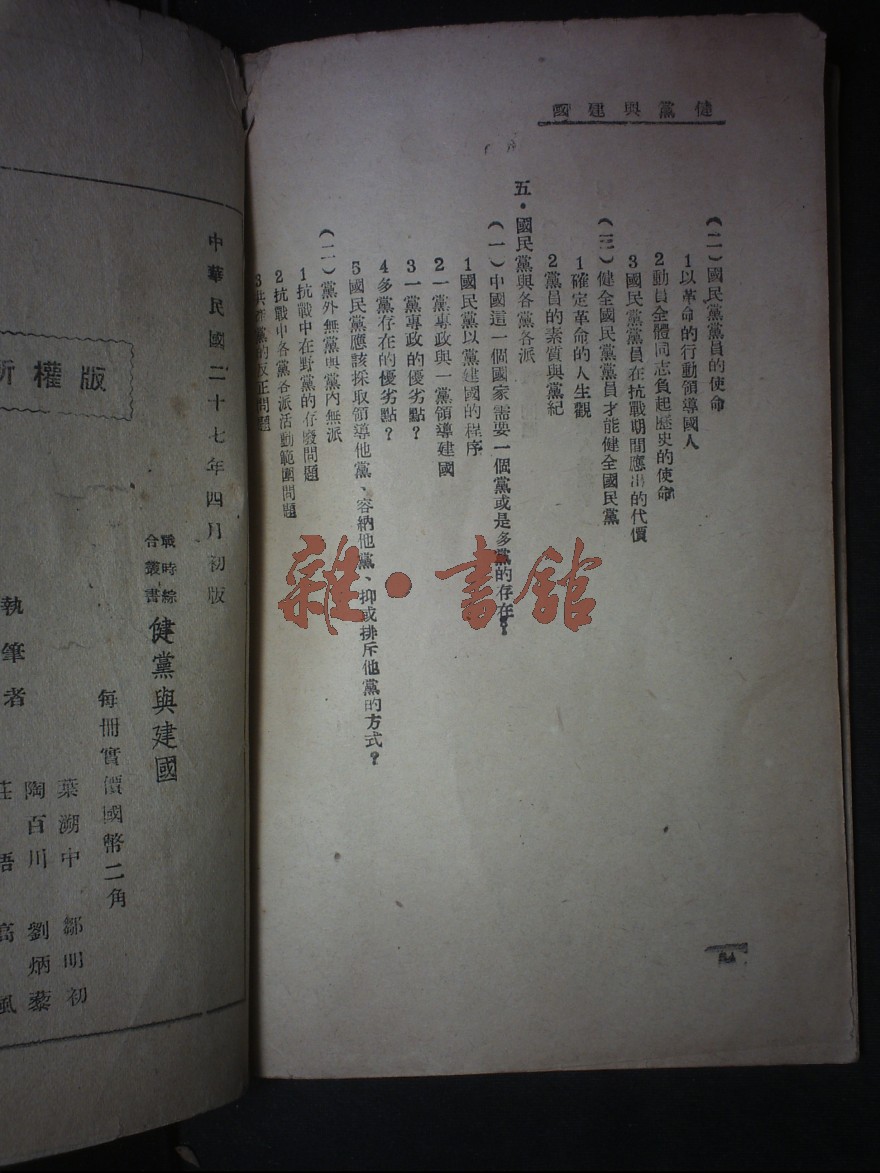 健黨與建國
（二）國民黨黨員的使命
1以革命的行動領導國人
2動員全體同志負起歷史的使命
3國民黨黨員在抗戰期間應出的代價
（三）健全國民黨黨員才能健全國民黨
1確定革命的人生觀
2黨員的素質與黨紀
五．國民黨與各黨各派
（一）中國這一個國家需要一個黨或是多黨的存在？
1國民黨以黨建國的程序
2一黨專政與一黨領導建國
3一黨專政的優劣點？
4多黨存在的優劣點？
5國民黨應該採取領導他黨、容納他黨、抑或排斥他黨的方式？
（二）黨外無黨與黨內無派
1抗戰中在野黨的存廢問題
2抗戰中各黨各派活動範圍問題
3共產黨的反正問題
雜·書館
中華民國二十七年四月初版
戰時綜合叢書
健黨與建國
每冊實價國幣二角
版權所
執筆者
葉溯中 鄒明初
陶百川 劉炳藜